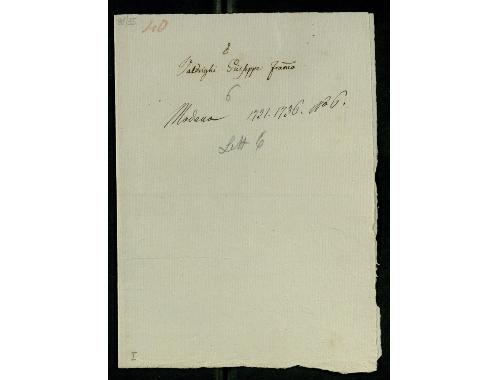 40
6
Valdrighi Giuseppe Franco
6
Modena 1721.1736. No 6.
Lett 6
I